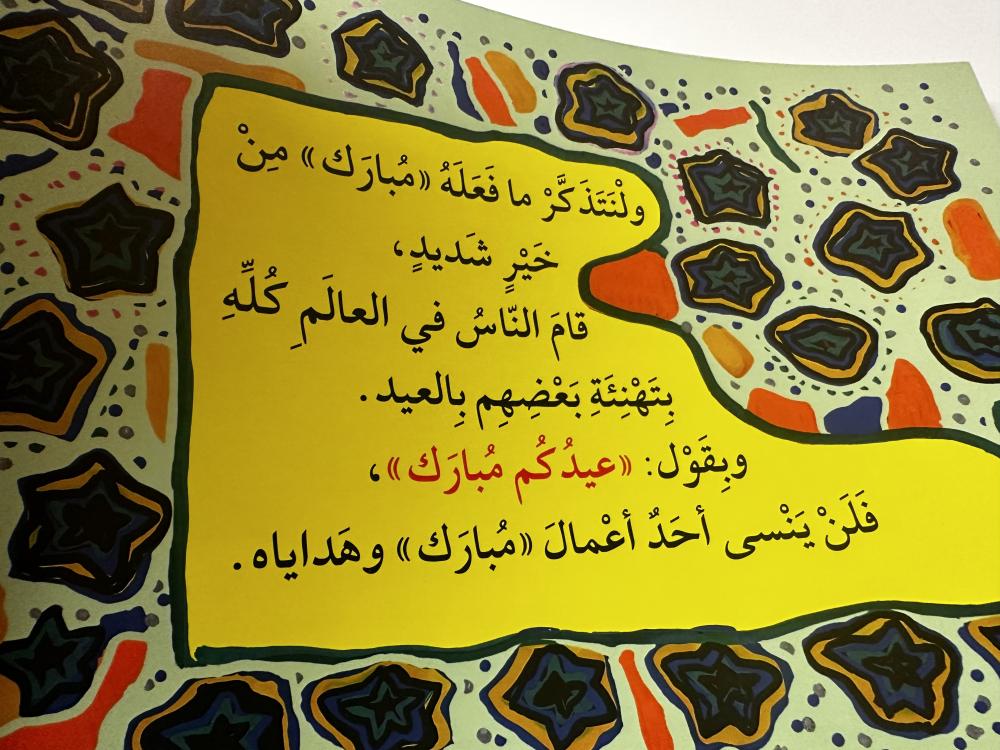 ولْنَتَذَكَّرْ ما فَعَلَهُ «مُبارَك» مِنْ
خَيْرٍ شَديدٍ،
قامَ النّاسُ في العالَمِ كُلِّهِ
بِتَهْنِئَةِ بَعْضِهِم بِالعيد.
وبِقَوْل: «عيدُكُم مُبارَك»،
فَلَنْ يَنْسى أحَدٌ أعْمالَ «مُبارَك» وهَداياه.